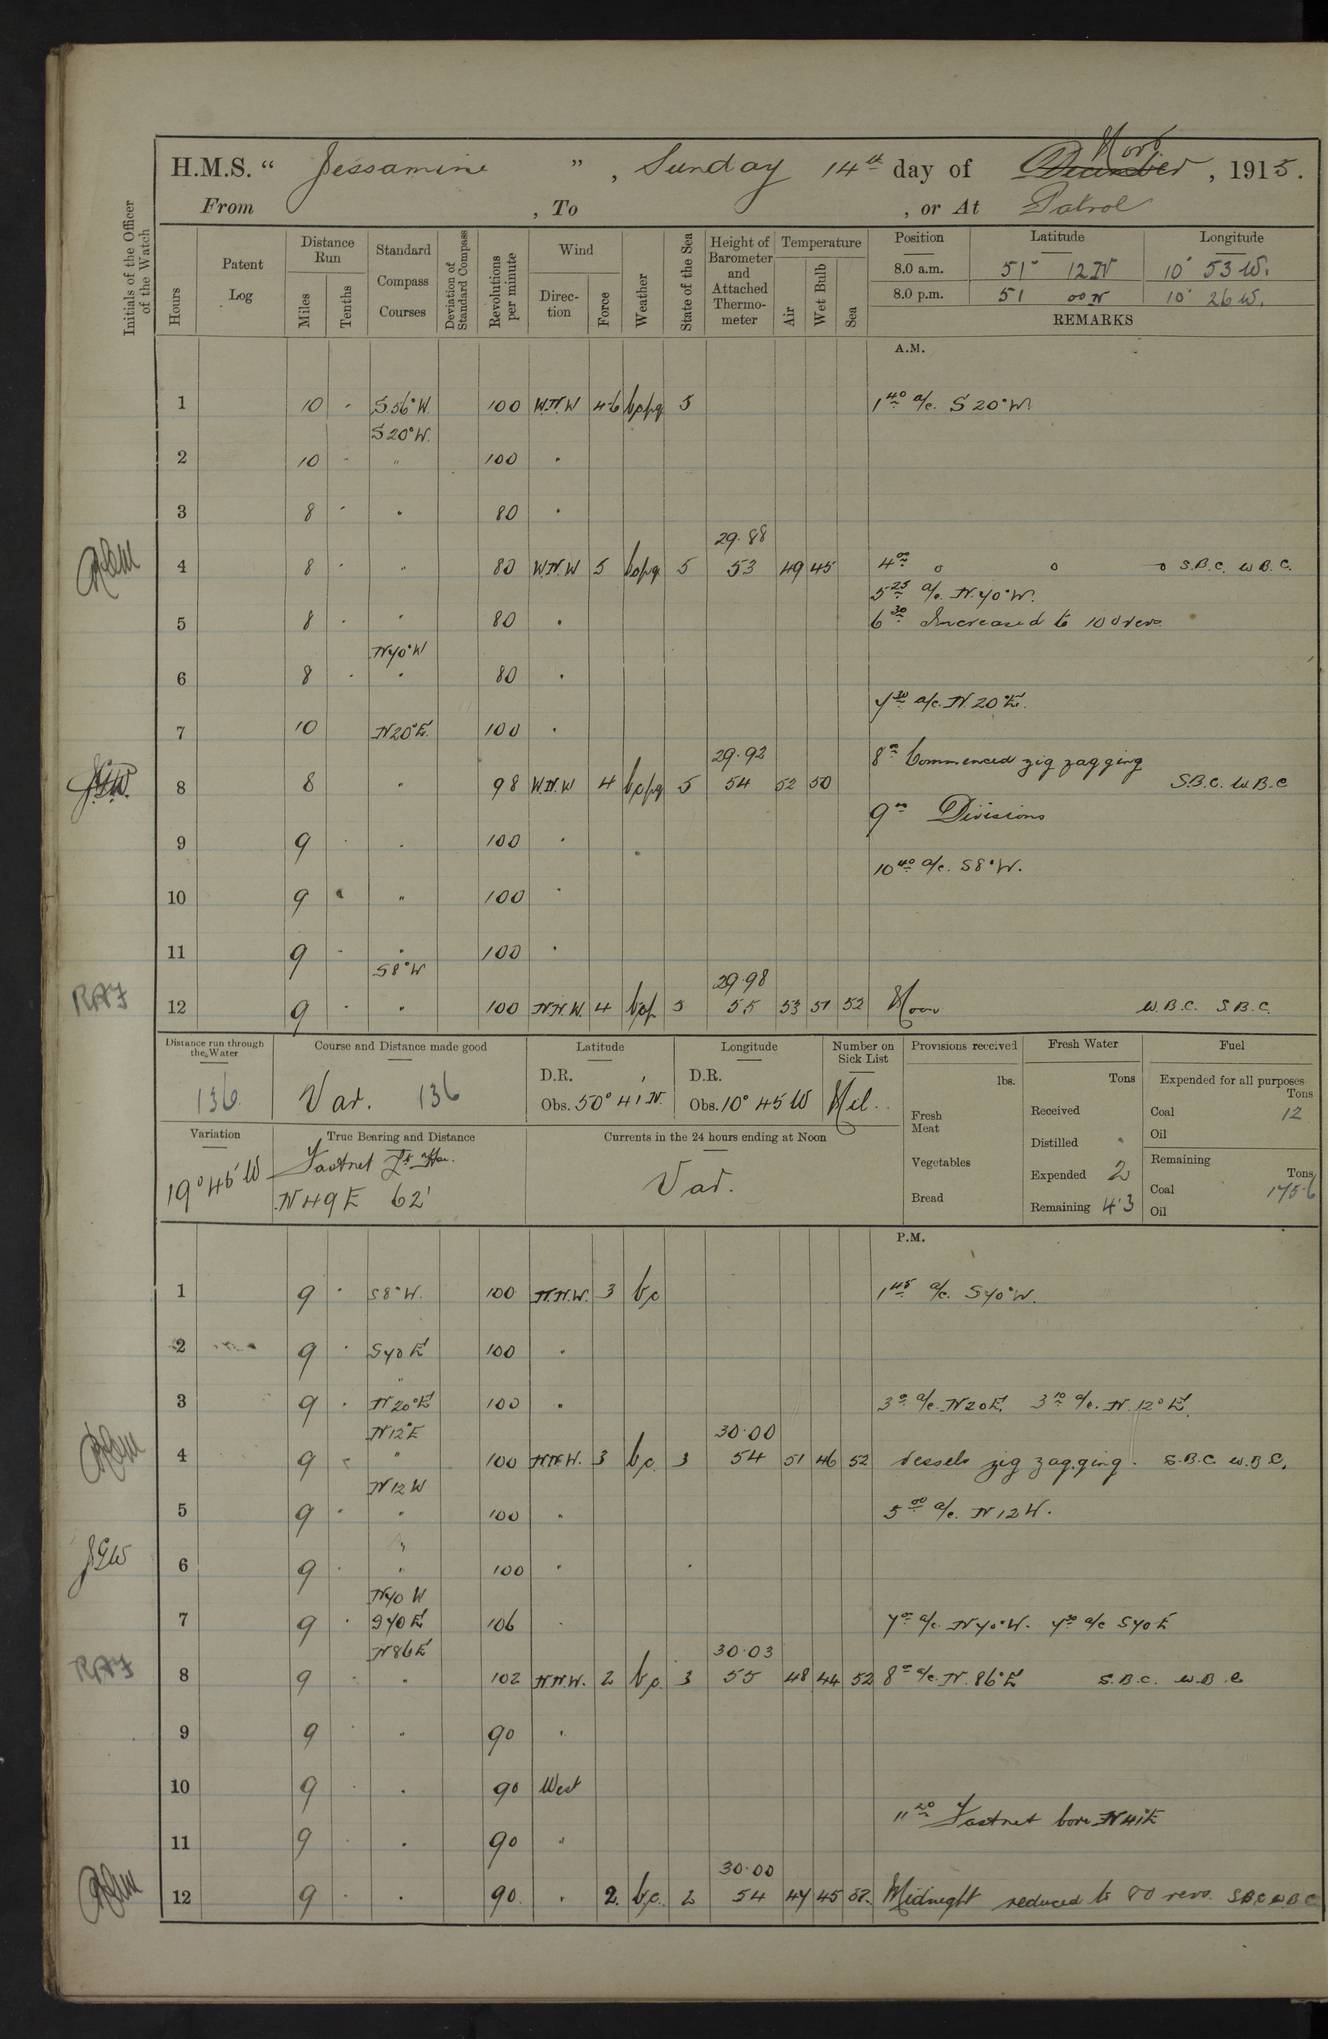 H.M.S. “ Jessamine ” , Sunday 14th day of December Novr , 1915.
From , To , or At Patrol
Initials of the Officer of the Watch
Hours
Patent Log
Distance Run
Miles
Tenths
Standard Compass Courses
Deviation of Standard Compass
Revolutions per minute
Wind
Direction
Force
Weather
State of the Sea
Height of Barometer and Attached Thermometer
Temperature
Air
Wet Bulb
Sea
Position Latitude Longitude
8.0 a.m. 51° 12 N 10° 53 W.
8.0 p.m. 51 00 N 10° 26 W.
REMARKS
A.M.
1 10 . S 56° W. 100 W.N.W 4-6 bcpq 5 1 40 a/c. S 20° W.
S 20° W.
2 10 - " 100 .
3 8 . . 80 .
29.88
4 8 . " 80 W.N.W 5 bcpq 5 53 49 45 4 00 o o o S.B.C. W.B.C.
5 25 a/c. N. 70° W.
5 8 . " 80 . 6 30 Increased to 100 revs
N 70° W
6 8 . . 80 .
7 30 a/c. N. 20° E.
7 10 N 20° E. 100 .
29.92
8 00 Commenced zig zagging
8 8 " 98 W.N.W 4 bcpq 5 54 52 50 S.B.C. W.B.C
9 00 Divisions
9 9 . . 100 .
10 40 a/c. S 8° W.
10 9 . " 100 .
11 9 - " 100 .
S 8° W
29.98
RAF 12 9 . . 100 N.N.W. 4 bcp 5 55 53 51 52 Noon W.B.C. S.B.C.
Distance run through the Water
136
Course and Distance made good
Var. 136
Latitude
D.R.
Obs. 50° 41' N.
Longitude
D.R.
Obs. 10° 45 W
Number on Sick List
Nil.
Provisions received
lbs.
Fresh Meat
Vegetables
Bread
Fresh Water
Tons
Received
Distilled
Expended 2
Remaining 43
Fuel
Expended for all purposes
Tons
Coal 12
Oil
Remaining
Tons
Coal 175.6
Oil
Variation
19° 45' W
True Bearing and Distance
Fastnet Lt Hse.
N 49 E 62'
Currents in the 24 hours ending at Noon
Var.
P.M.
1 9 . S 8° W. 100 N.N.W. 3 bc 1 45 a/c. S 70° W.
2 9 . S 70 E 100 .
"
3 9 . N 20° E 100 . 3 0 a/c. N 20 E. 3 10 a/c. N. 12° E.
N 12° E
30.00
4 9 " 100 N.N.W. 3 bc. 3 54 51 46 52 Vessels zig zagging. S.B.C. W.B.C.
N 12 W
5 9 . " 100 . 5 00 a/c. N 12 W.
JGW 6 9 . . 100 .
N 70 W
7 9 . S 70 E 106 . 7 00 a/c. N 70° W. 7 30 a/c S 70 E
N 86 E
30.03
RAF 8 9 . 102 N.N.W. 2 bc. 3 55 48 44 52 8 00 a/c. N. 86° E S.B.C. W.B.C
9 9 . " 90 .
10 9 . . 90 West
11 20 Fastnet bore N 41° E
11 9 . . 90 "
30.00
12 9 . . 90. . 2. bc. 2 54 47 45 52. Midnight reduced to 80 revs. S.B.C W.B.C